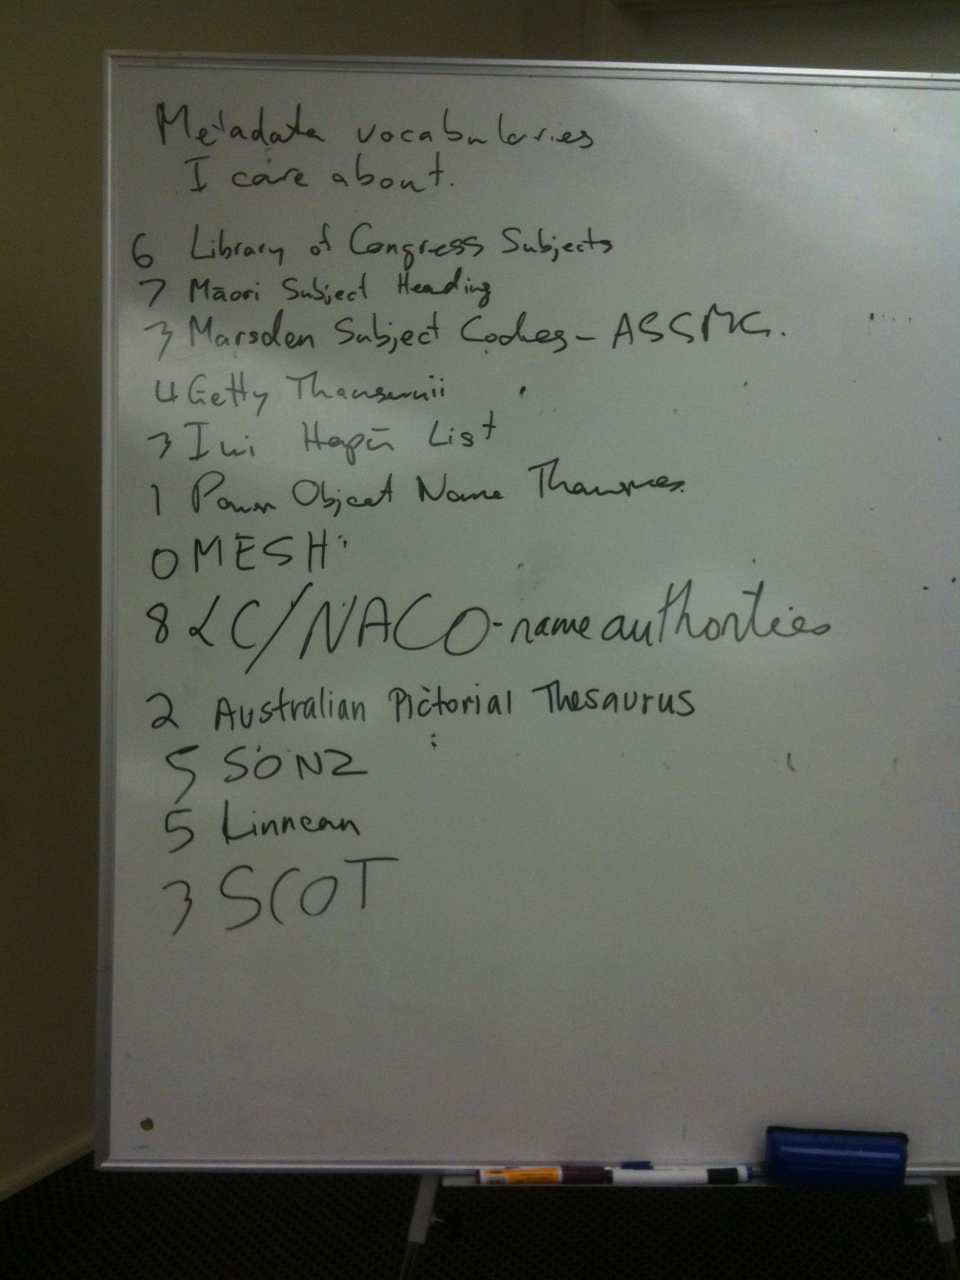 Metadata vocabularies
I care about.
6 Library of Congress Subjects
7 Māori Subject Heading
3 Marsden Subject Codes - ASSMC.
4 Getty
3 Iwi Hapū List
1 Object Name
0 MESH
8 LC/NACO-name authorties
2 Australian Pictorial Thesaurus
5 SONZ
5 Linnean
3 SCOT